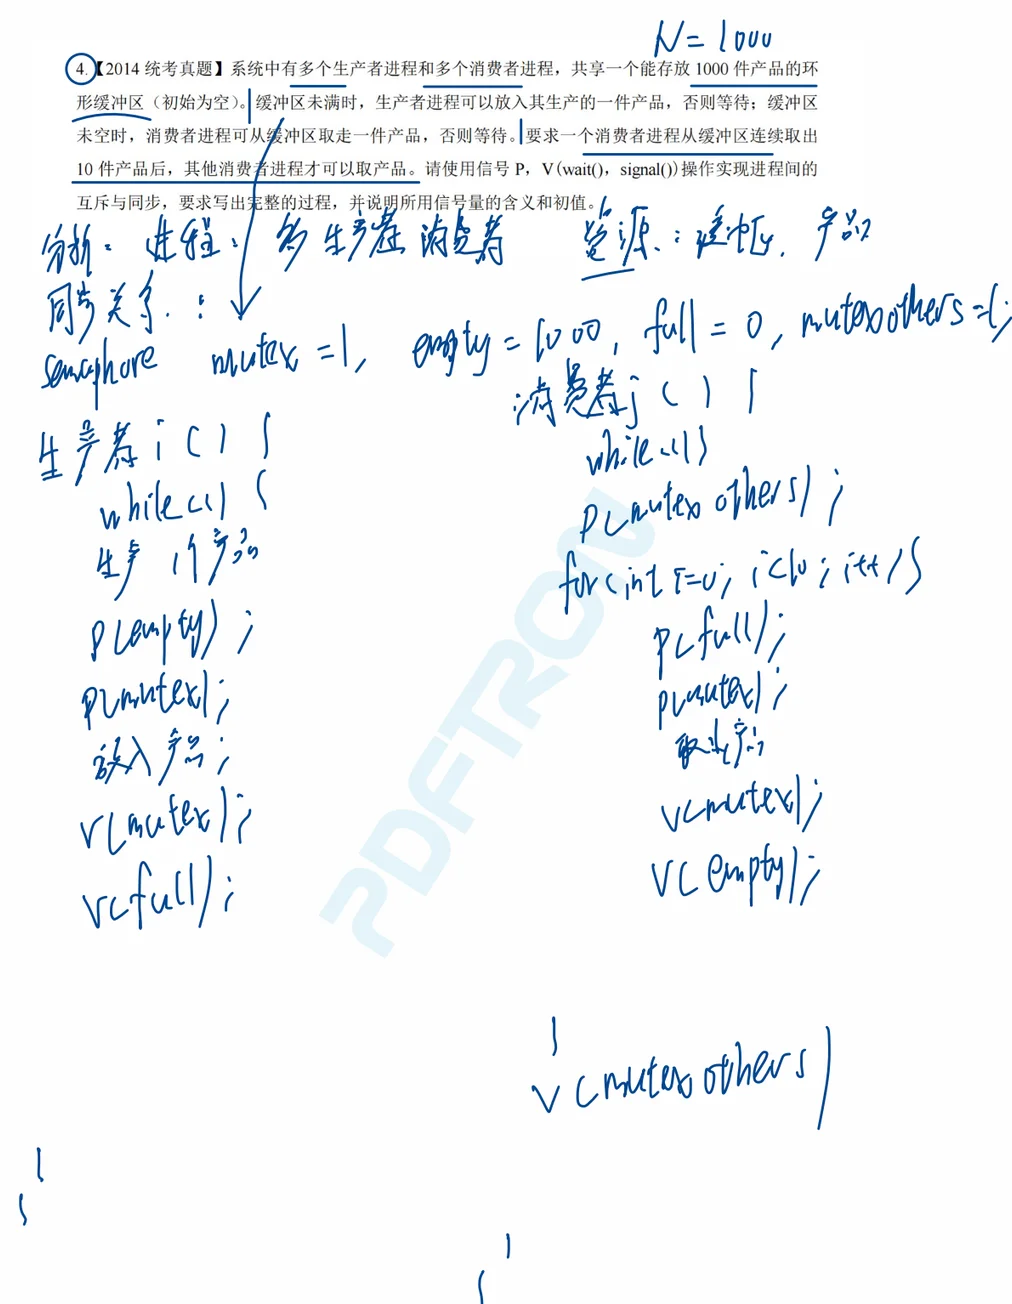 N=1000
4.【2014 统考真题】系统中有多个生产者进程和多个消费者进程，共享一个能存放 1000 件产品的环
形缓冲区（初始为空）。缓冲区未满时，生产者进程可以放入其生产的一件产品，否则等待；缓冲区
未空时，消费者进程可从缓冲区取走一件产品，否则等待。要求一个消费者进程从缓冲区连续取出
10 件产品后，其他消费者进程才可以取产品。请使用信号 P，V(wait()，signal())操作实现进程间的
互斥与同步，要求写出完整的过程，并说明所用信号量的含义和初值。
分析：进程：多生产者 消费者 资源：缓冲区. 产品
同步关系：
semaphore mutex=1, empty=1000, full=0, mutexothers=1;
生产者i() {
while(1) {
生产1个产品
P(empty);
P(mutex);
放入产品;
V(mutex);
V(full);
}
}
消费者j() {
while(1){
P(mutexothers);
for(int i=0; i<10; i++){
P(full);
P(mutex);
取出产品
V(mutex);
V(empty);
}
V(mutexothers)
}
}
PDFTRON